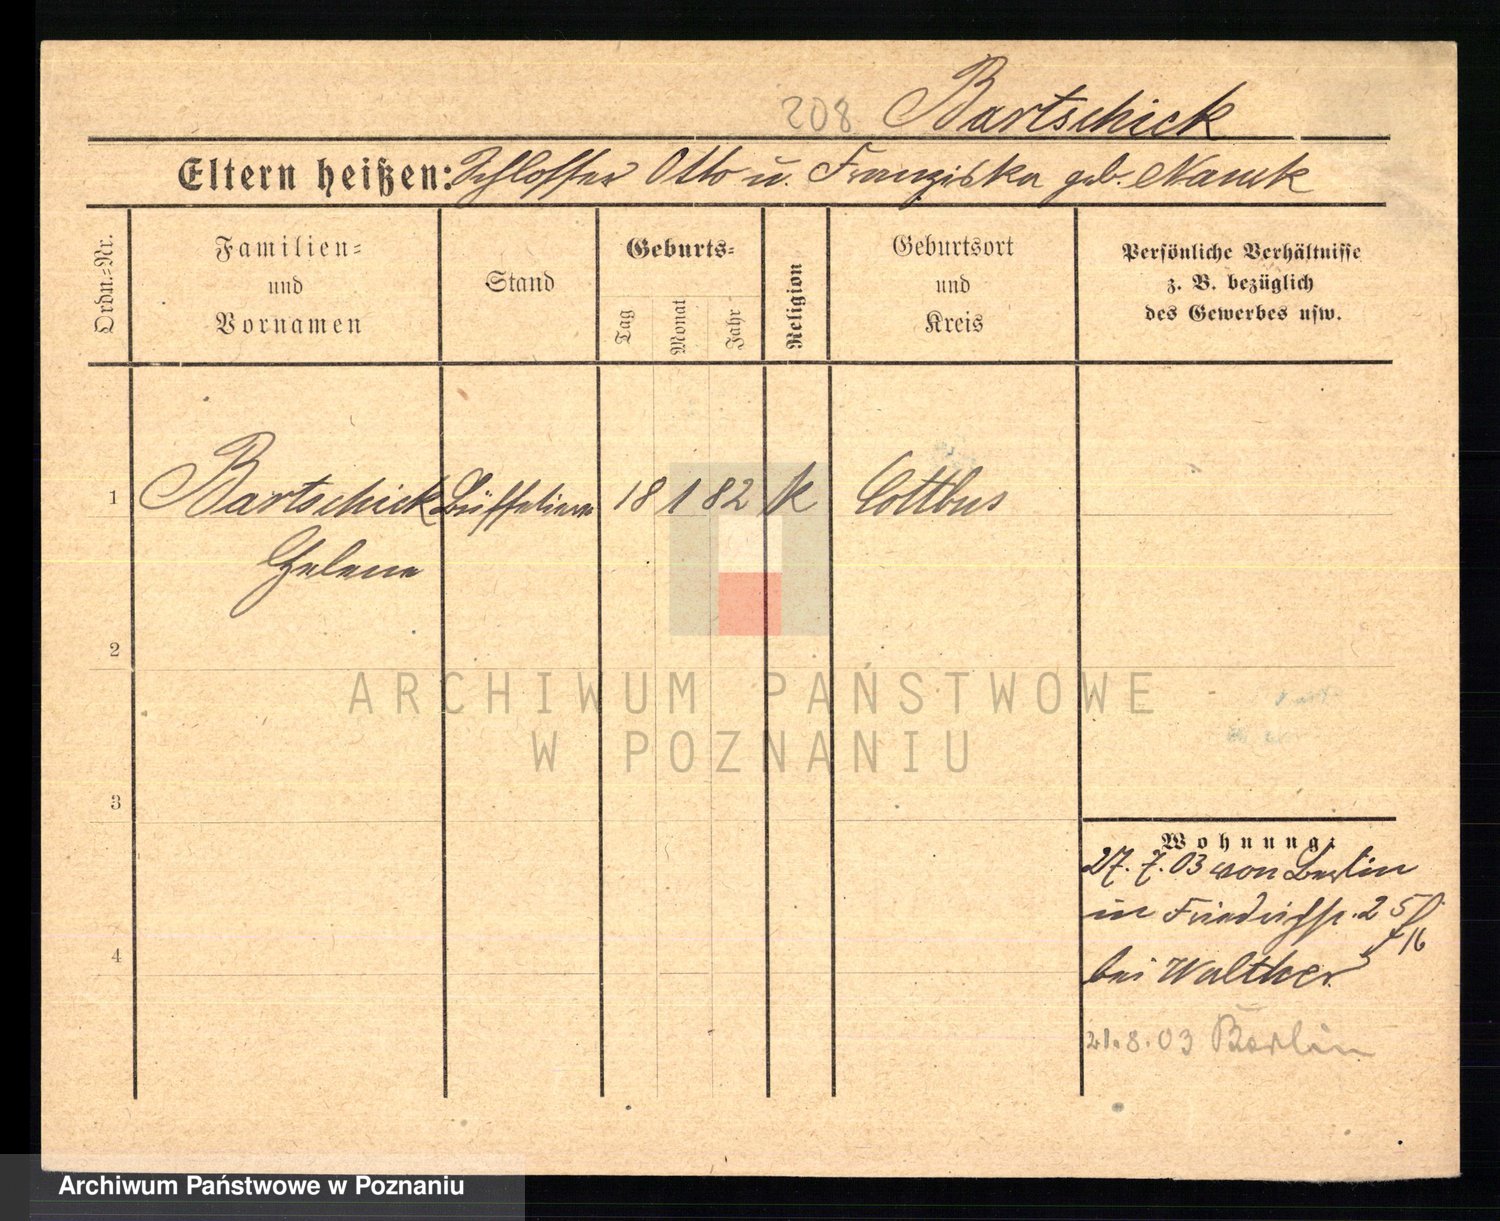 208 Bartschick
Eltern heißen: Schlosser Otto u. Franziska geb.
Ordn.=Nr.
Familien=
und
Vornamen
Stand
Geburts=
Tag
Monat
Jahr
Religion
Geburtsort
und
Kreis
Persönliche Verhältnisse
z. B. bezüglich
des Gewerbes usw.
1 Bartschick Büffetiere 18 1 82 K Cottbus
Helene
2
ARCHIWUM PAŃSTWOWE
W POZNANIU
3
Wohnung:
27. 7. 03 von Berlin
in Friedrichstr. 25
16
4
bei Walther
21. 8. 03 Berlin
Archiwum Państwowe w Poznaniu